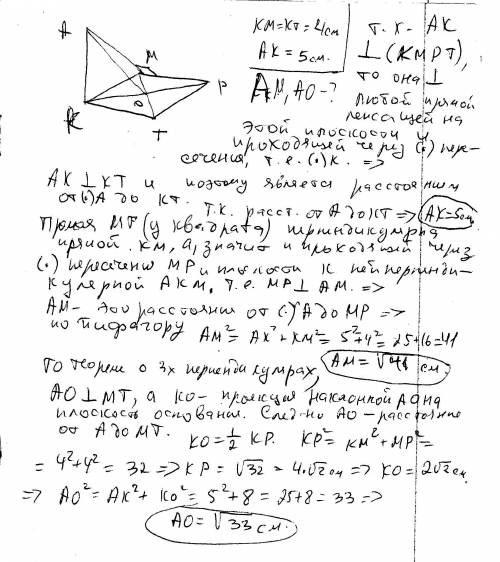 A
M
K
O
P
T
KM=KT=4см
AK=5см.
AM, AO-?
т.к. AK
⊥ (KMPT),
то она ⊥
любой прямой
лежащей на
этой плоскости и
проходящей через (·) пере-
сечения, т.е. (·) K. =>
AK ⊥ KT и поэтому является расстоянием
от (·) A до KT. Т.к. расст. от A до KT => AK=5см
Прямая MT (у квадрата) перпендикулярна
прямой KM, а, значит и проходящей через
(·) пересечения MP и плоскости K ней перпенди-
кулярной AKM, т.е. MP ⊥ AM. =>
AM- это расстояние от (·) A до MP =>
по Пифагору AM²= AK²+KM²= 5²+4²= 25+16=41
AM = √41 см.
По теореме о 3х перпендикулярах,
AO ⊥ MT, а KO- проекция наклонной AO на
плоскость основания. След-но AO-расстояние
от A до MT. KO= 1/2 KP. KP²= KM²+MP²=
= 4²+4² = 32 => KP = √32 = 4√2 см => KO = 2√2 см
=> AO²= AK²+ KO²= 5²+8 = 25+8 = 33 =>
AO = √33 см.